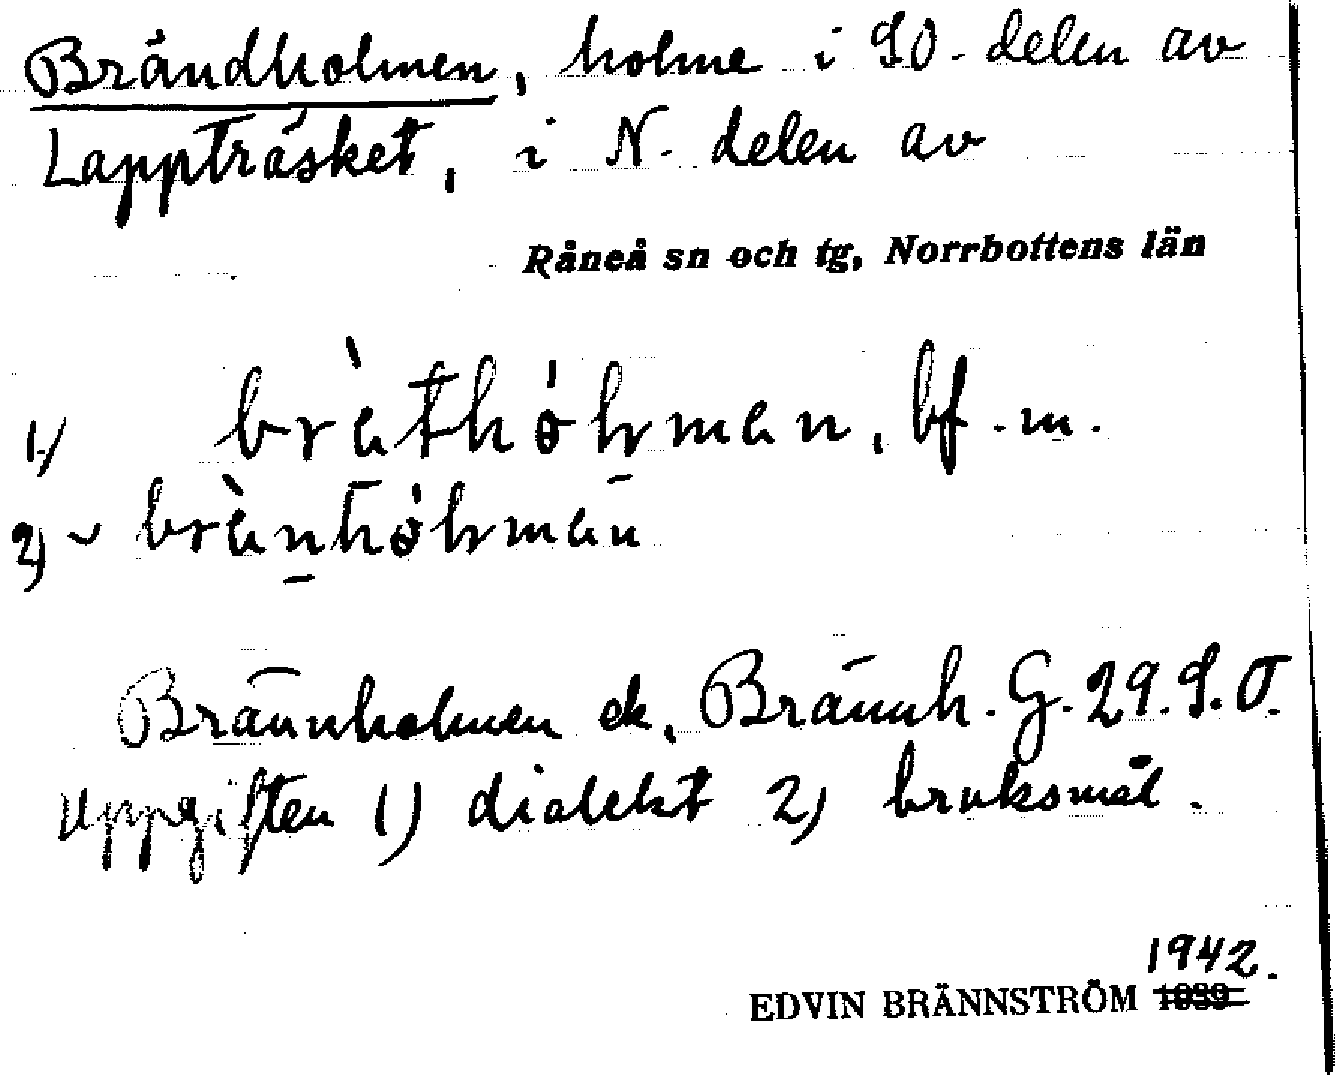 Brändholmen, holme i SO. delen av
Lappträsket, i N. delen av
Råneå sn och tg, Norrbottens län
1) brèthọ̀hmen, bf. m.
2) ~ brèn̲họ̀hmen
Brännholmen ek, Brännh. G. 29. S. O.
Uppgiften 1) dialekt 2) bruksmål.
1942.
EDVIN BRÄNNSTRÖM 1939